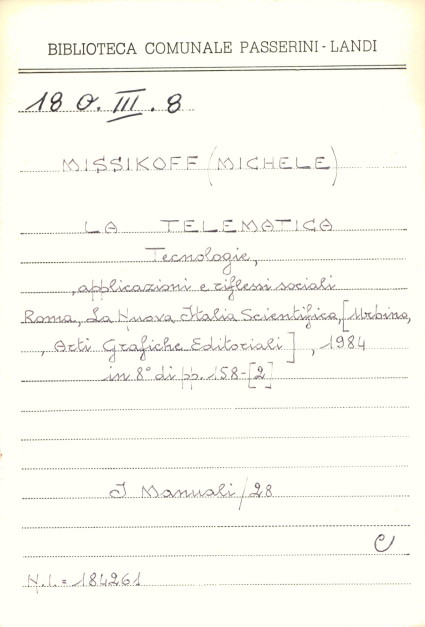 BIBLIOTECA COMUNALE PASSERINI-LANDI
180.III.8
MISSIKOFF (MICHELE)
LA TELEMATICA
Tecnologie,
applicazioni e riflessi sociali
Roma, La Nuova Italia Scientifica, [Urbino,
, Arti Grafiche Editoriali], 1984
in 8° di pp. 158-[2]
I Manuali/28
C
N.I.=184261